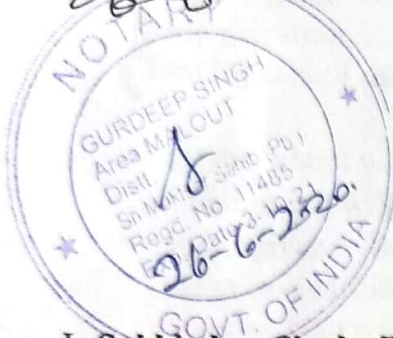 NOTARY
GURDEEP SINGH
Area MALOUT
Distt.
Sri Muktsar Sahib (Pb.)
Regd. No. 11485
Date 3-10-21
26-6-2020.
GOVT. OF INDIA